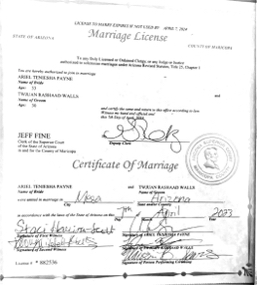 LICENSE TO MARRY EXPIRES IF NOT USED BY APRIL 7, 2024
Marriage License
STATE OF ARIZONA
COUNTY OF MARICOPA
To any Duly Licensed or Ordained Clergy, or any Judge or Justice
authorized to solemnize marriages under Arizona Revised Statutes, Title 25, Chapter 1
You are hereby authorized to join in marriage
ARIEL TENIESHA PAYNE
and
Name of Bride
Age: 33
TWIUAN RASHAAD WALLS
Name of Groom
Age: 38
and certify the same and return to this office according to law.
Witness my hand and official seal
this 7th Day of April,
JEFF FINE
Clerk of the Superior Court
of the State of Arizona
in and for the County of Maricopa
Deputy Clerk
Certificate Of Marriage
ARIEL TENIESHA PAYNE and TWIUAN RASHAAD WALLS
Name of Bride
Name of Groom
were united in marriage in Mesa Arizona
City
State and/or County
in accordance with the laws of the State of Arizona on this 7th April 2023
Signature of First Witness
Signature of ARIEL TENIESHA PAYNE
Signature of Second Witness
Signature of TWIUAN RASHAAD WALLS
Signature of Person Performing Ceremony
License #